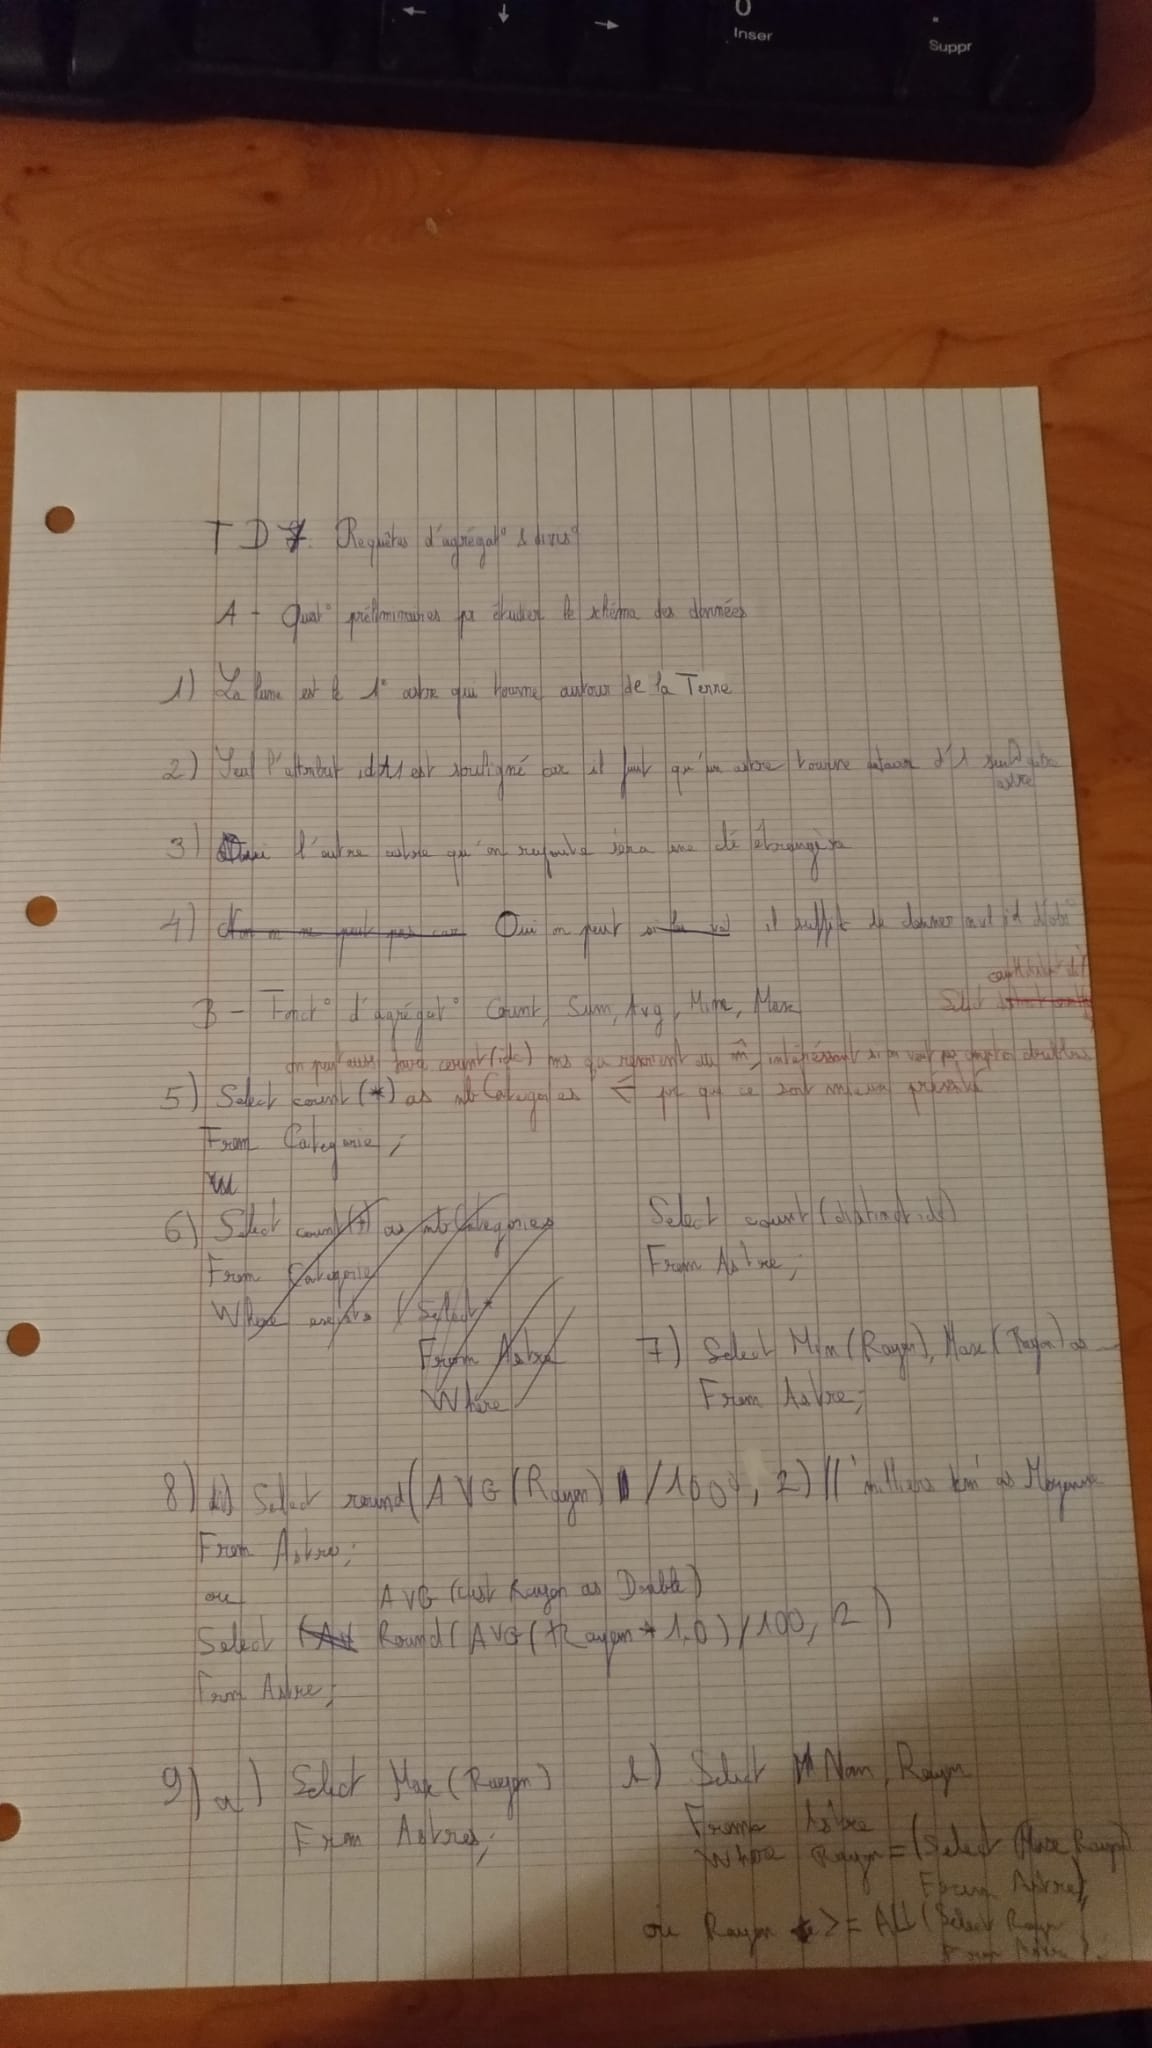 Inser
Suppr
TD 7. Requêtes d'agrégat° & divis°
A - Quest° préliminaires pr étudier le schéma des données
1) La lune est le 1° astre qui tourne autour de la Terre
2) Seul l'attribut idA1 est souligné car il faut qu'un astre tourne autour d'1 seul autre
astre
3) Oui l'autre astre qu'on rajoute sera une clé étrangère
4) Non on ne peut pas car Oui on peut si la val il suffit de donner id
B - Fonct° d'agrégat° Count, Sum, Avg, Min, Max
Select
on peut aussi faire count(idc) ms ça revient au m̂, intéressant si on veut pas compter doublons
5) Select count(*) as nbCategories ← pr que ce soit mieux présenté
From Categorie;
6) Select count(*) as nbCategories
From Categorie
Where exists (Select *
From Astre
Where
Select count(distinct idc)
From Astre;
7) Select Min(Rayon), Max(Rayon) as
From Astre;
8) Select round(AVG(Rayon)/1000, 2) || 'milliers km' as Moyenne
From Astre;
ou AVG (cast Rayon as Double)
Select Round(AVG(Rayon * 1.0)/100, 2)
From Astre;
9) a) Select Max(Rayon)
From Astres;
b) Select Nom, Rayon
From Astre
Where Rayon = (Select Max Rayon)
From Astre)
ou Rayon >= ALL (Select Rayon
From Astre);